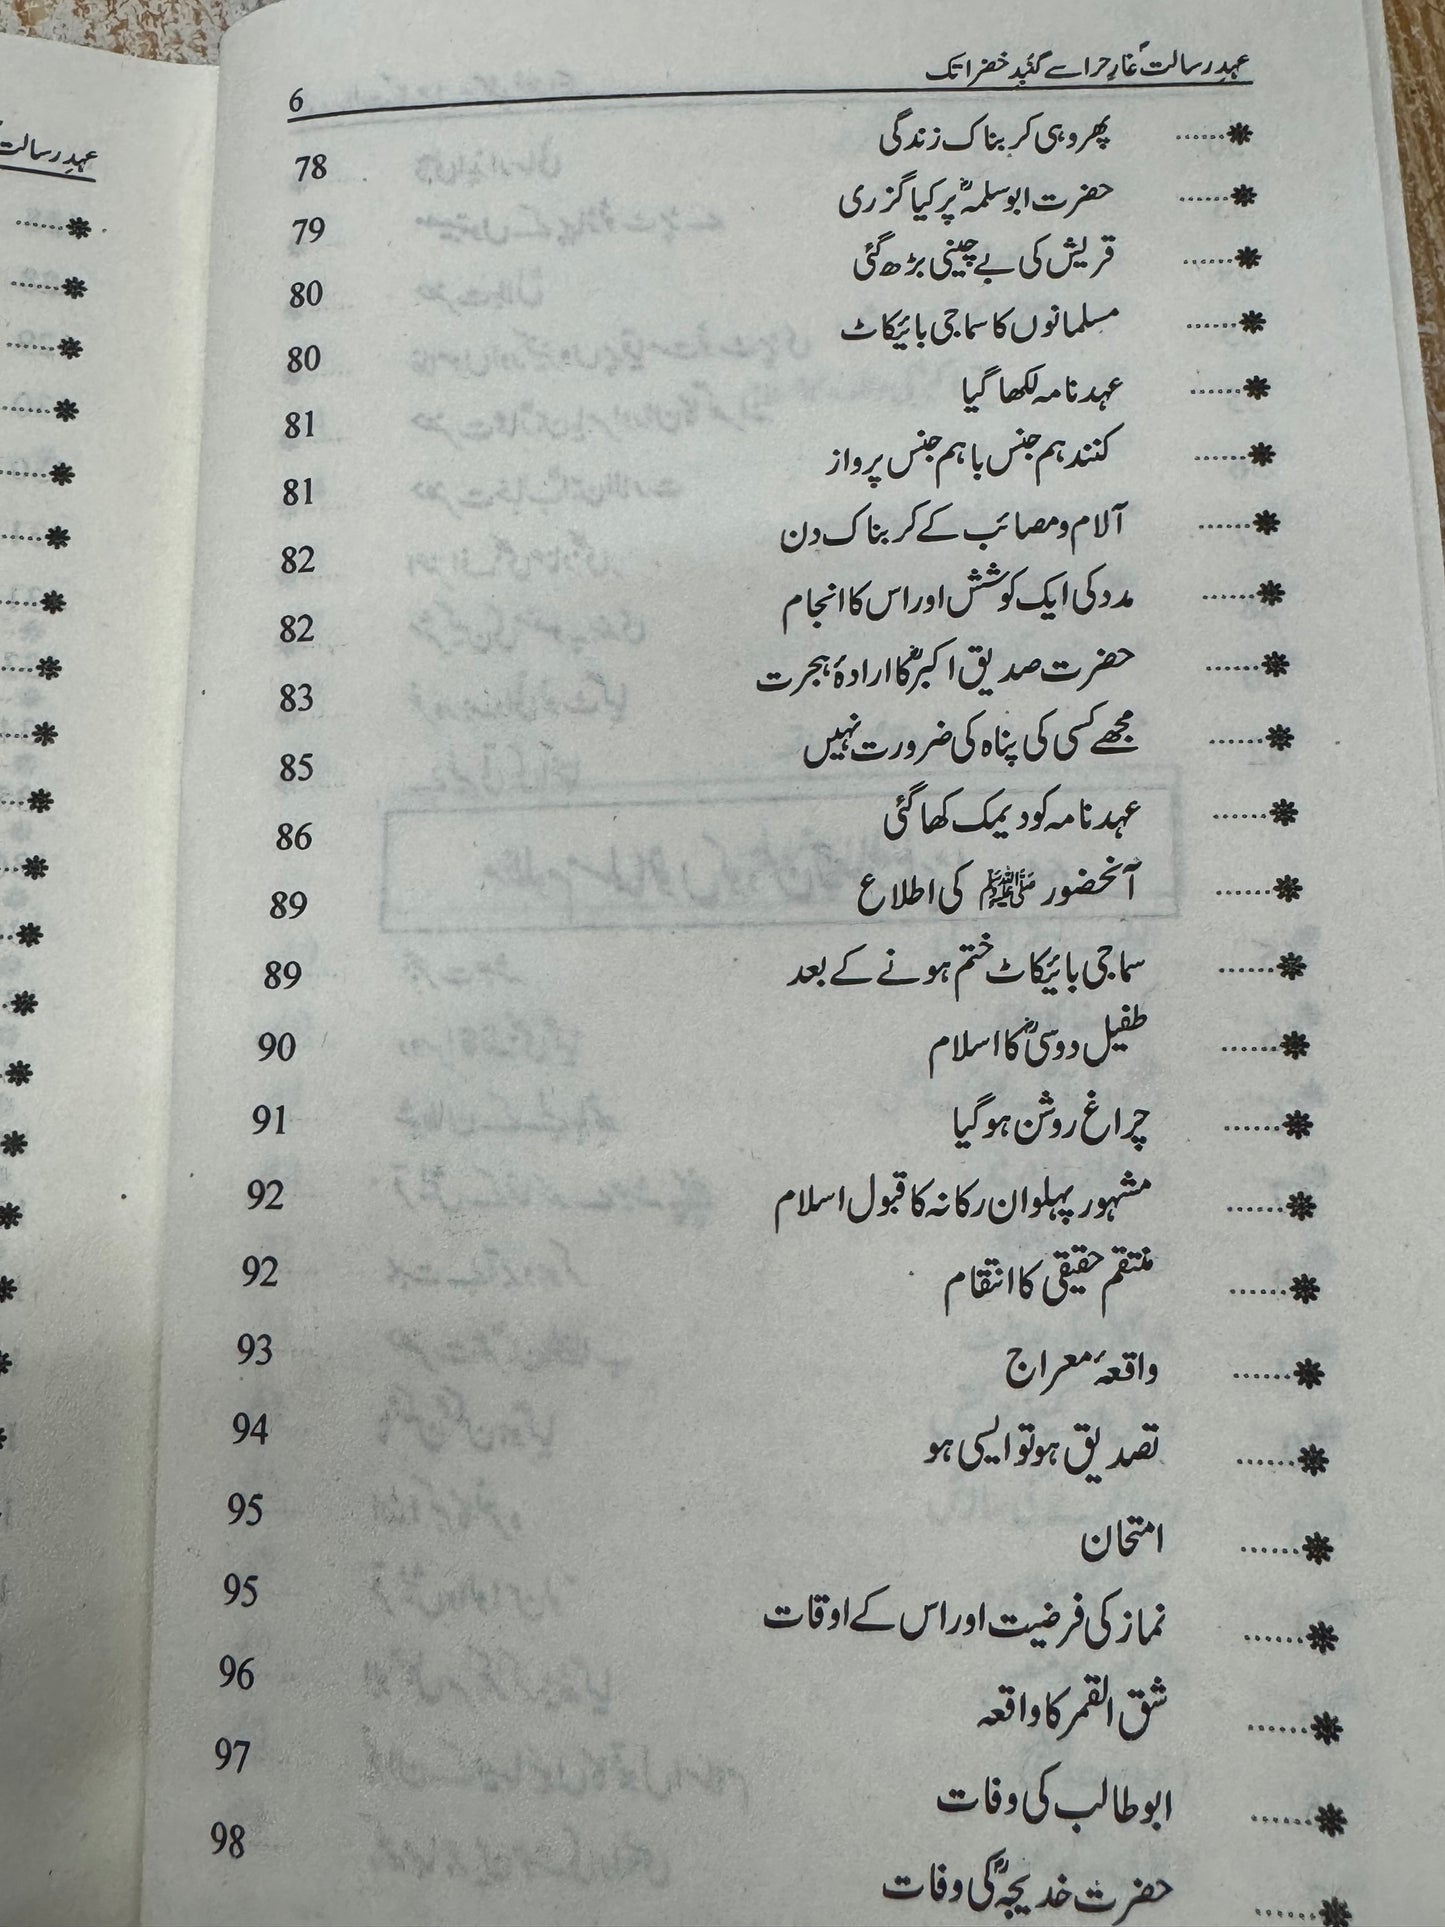 عہدِ رسالتؐ غارِ حرا سے گنبدِ خضرا تک
6
پھر وہی کربناک زندگی 78
حضرت ابوسلمہؓ پر کیا گزری 79
قریش کی بے چینی بڑھ گئی 80
مسلمانوں کا سماجی بائیکاٹ 80
عہد نامہ لکھا گیا 81
کنند ہم جنس باہم جنس پرواز 81
آلام و مصائب کے کربناک دن 82
مدد کی ایک کوشش اور اس کا انجام 82
حضرت صدیق اکبرؓ کا ارادۂ ہجرت 83
مجھے کسی کی پناہ کی ضرورت نہیں 85
عہد نامہ کو دیمک کھا گئی 86
آنحضور ﷺ کی اطلاع 89
سماجی بائیکاٹ ختم ہونے کے بعد 89
طفیل دوسیؓ کا اسلام 90
چراغ روشن ہو گیا 91
مشہور پہلوان رکانہ کا قبول اسلام 92
منتقم حقیقی کا انتقام 92
واقعۂ معراج 93
تصدیق ہو تو ایسی ہو 94
امتحان 95
نماز کی فرضیت اور اس کے اوقات 95
شق القمر کا واقعہ 96
ابوطالب کی وفات 97
حضرت خدیجہؓ کی وفات 98
عہدِ رسالت